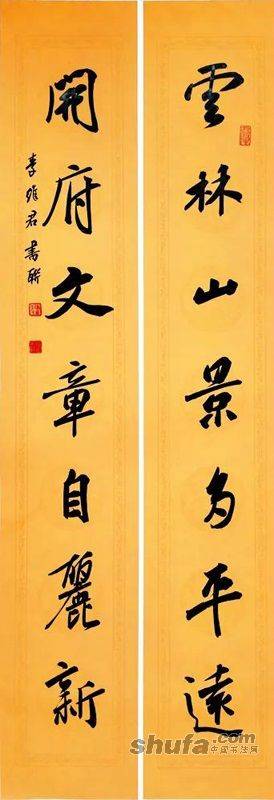 雲林山景多平遠
開府文章自麗新
李唯君書聯
shufa.com
中国书法网